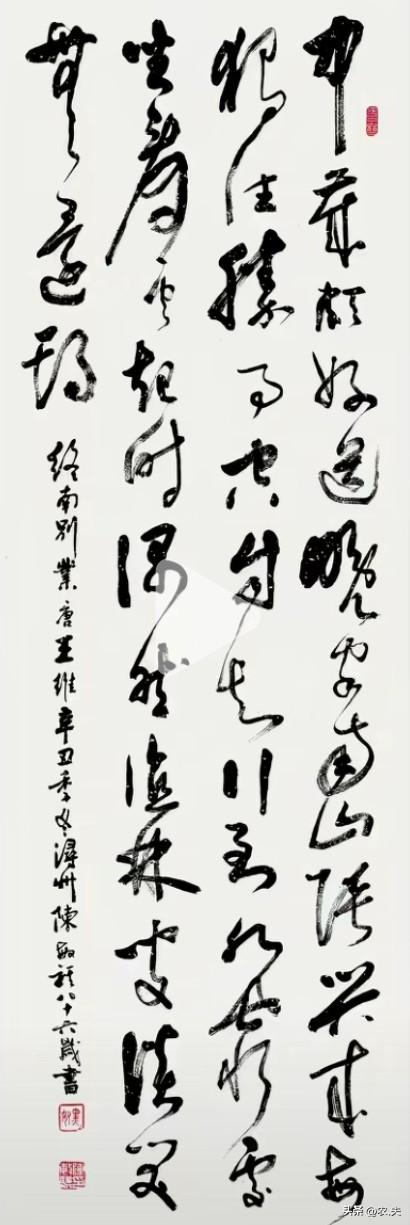 中歲頗好道晚家南山陲興來每
獨往勝事空自知行到水窮處
坐看云起時偶然值林叟談笑
無還期
終南別業唐王維辛丑季冬潯州陳敏八十六歲書
头条 @农.夫